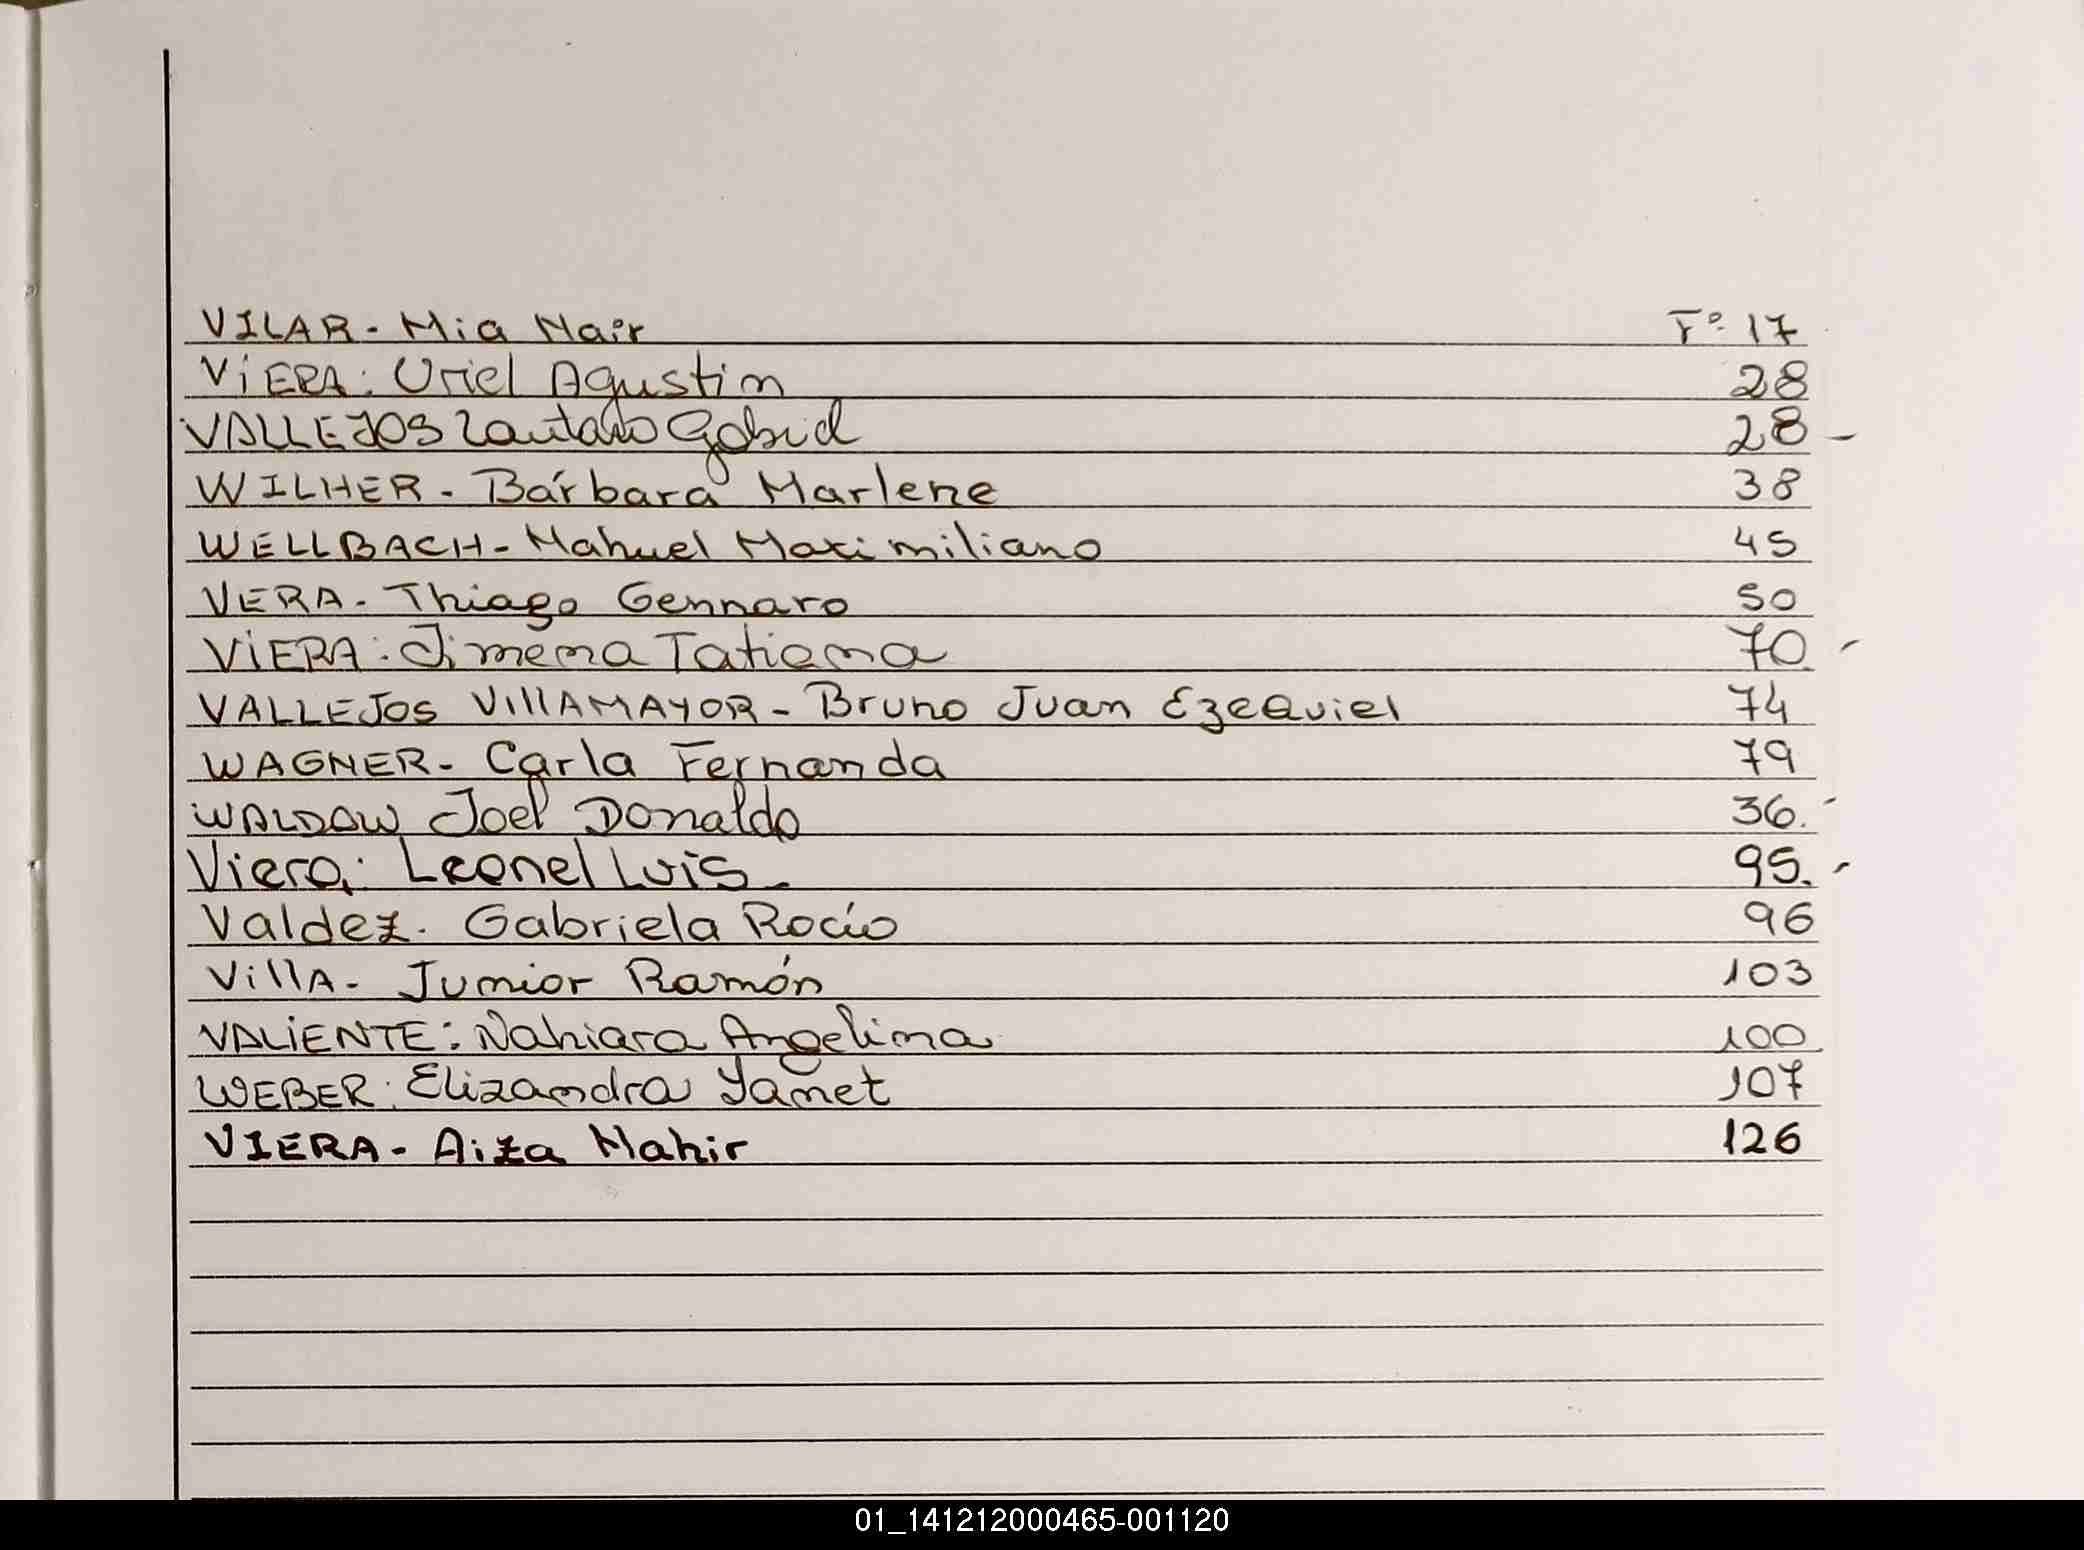 VILAR - Mia Nair Fº 17
ViERA: Uriel Agustin 28
VALLEJOS Lautaro Gabriel 28 -
WILHER - Bárbara Marlene 38
WELLBACH - Nahuel Maximiliano 45
VERA - Thiago Gennaro 50
ViERA: Jimena Tatiana 70. -
VALLEJOS VIllAMAYOR - Bruno Juan EzeQuiel 74
WAGNER - Carla Fernanda 79
WALDOW Joel Donaldo 36. -
Viera: Leonel Luis - 95. -
Valdez. Gabriela Rocío 96
VillA - Junior Ramón 103
VALiENTE: Nahiara Angelina 100
WEBER: Elizandra Yanet 107
VIERA - Aiza Nahir 126
01_141212000465-001120